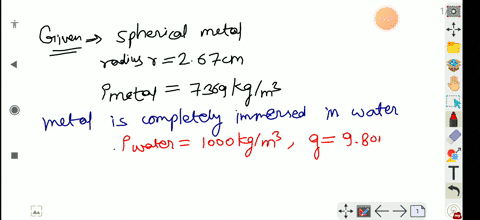 Given → Spherical metal
radius r = 2.67cm
ρmetal = 7369 kg/m³
metal is completely immersed in water
ρwater = 1000 kg/m³, g = 9.801